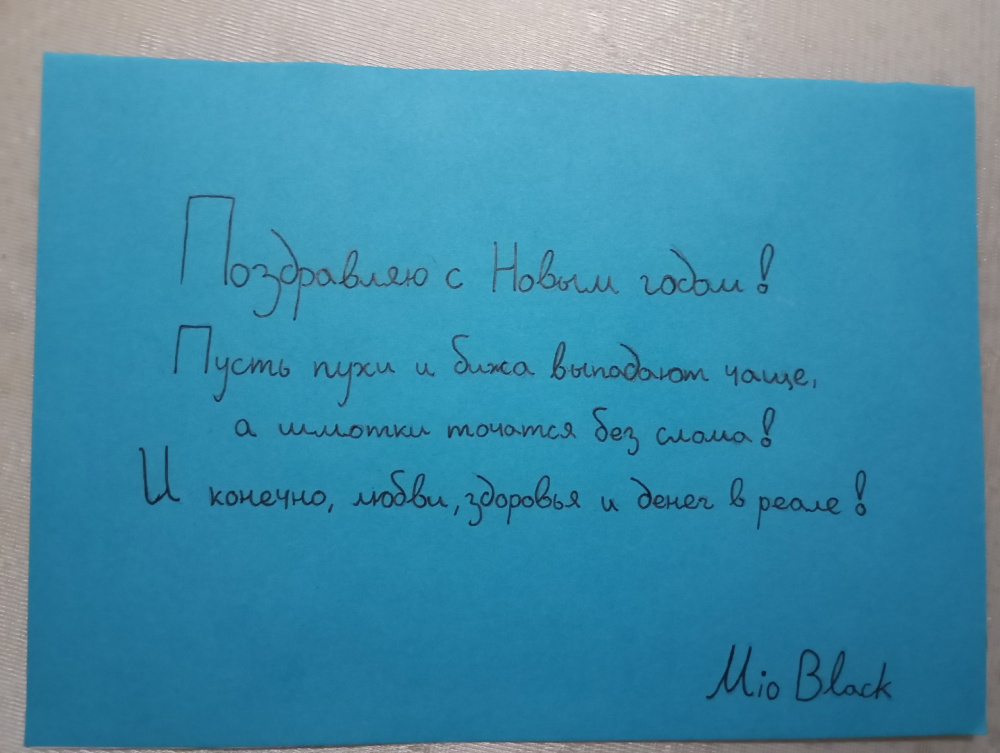 Поздравляю с Новым годом!
Пусть пухи и бижа выпадают чаще,
а шмотки точатся без слома!
И конечно, любви, здоровья и денег в реале!
Mio Black